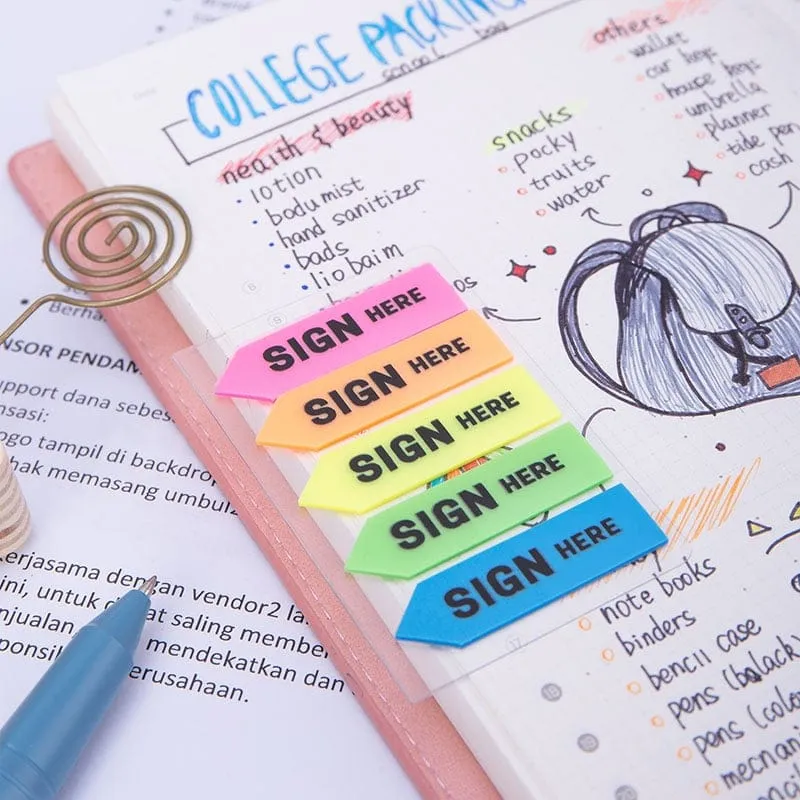 COLLEGE PACKING
school bag
health & beauty
• lotion
• body mist
• hand sanitizer
• bads
• lio baim
snacks
pocky
truits
water
others
wallet
umbrella
planner
tide pen
cash
SIGN HERE
SIGN HERE
SIGN HERE
SIGN HERE
SIGN HERE
note books
binders
bencil case
pens (black)
pens (colo
mecnani
8
9
17
19
NSOR PENDAM
upport dana sebes
nsasi:
ogo tampil di backdrop
hak memasang umbul
Kerjasama dengan vendor2 la
ini, untuk dapat saling member
njualan mendekatkan dan
esponsi perusahaan.